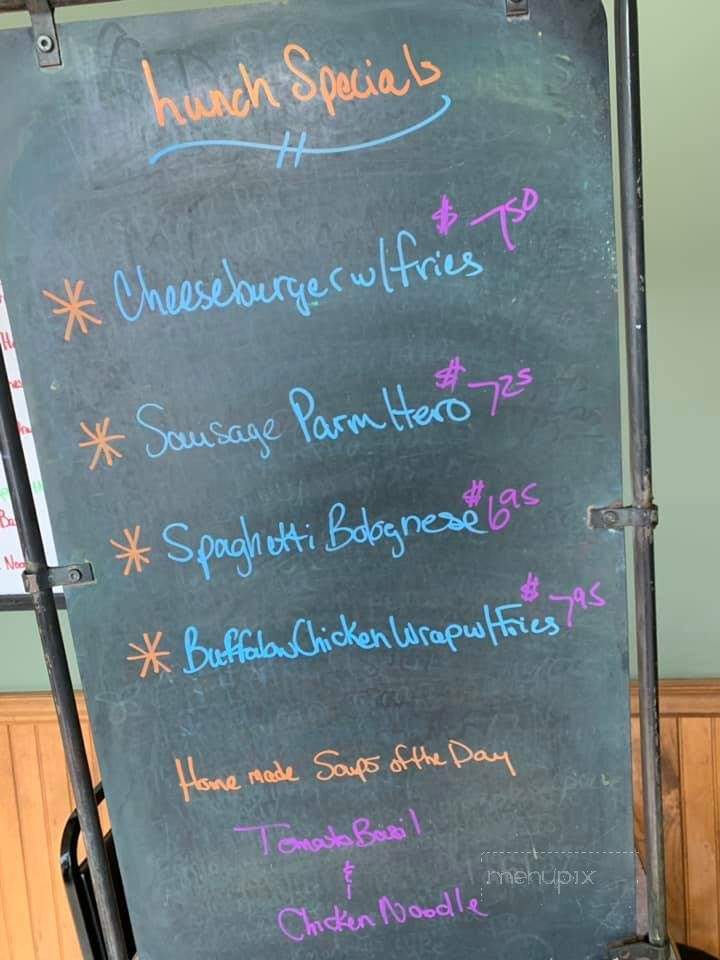 Lunch Specials
$7.50
* Cheeseburger w/fries
$7.25
* Sausage Parm Hero
$6.95
* Spaghetti Bolognese
$7.95
* Buffalow Chicken Wrap w/Fries
Home made Soups of the Day
Tomato Basil
&
Chicken Noodle
menupix